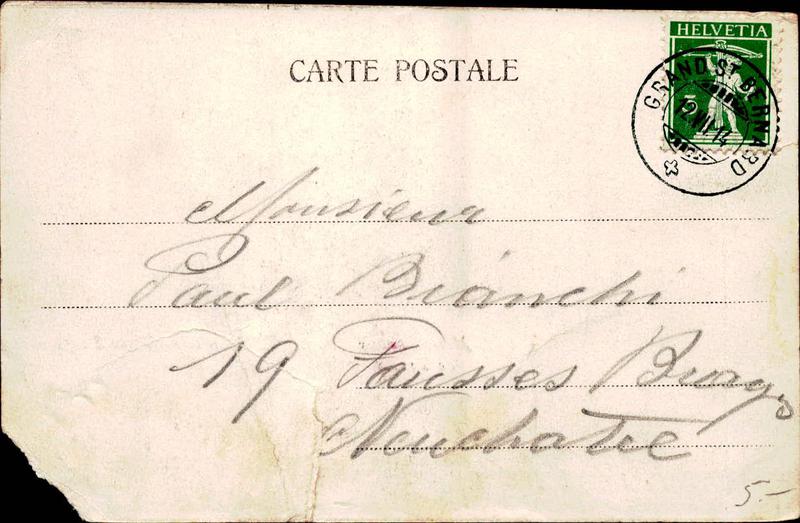 HELVETIA
5
CARTE POSTALE
GRAND ST BERNARD
12.VI.14
Monsieur
Paul Bianchi
19 Fausses Brays
Neuchatel
5.-